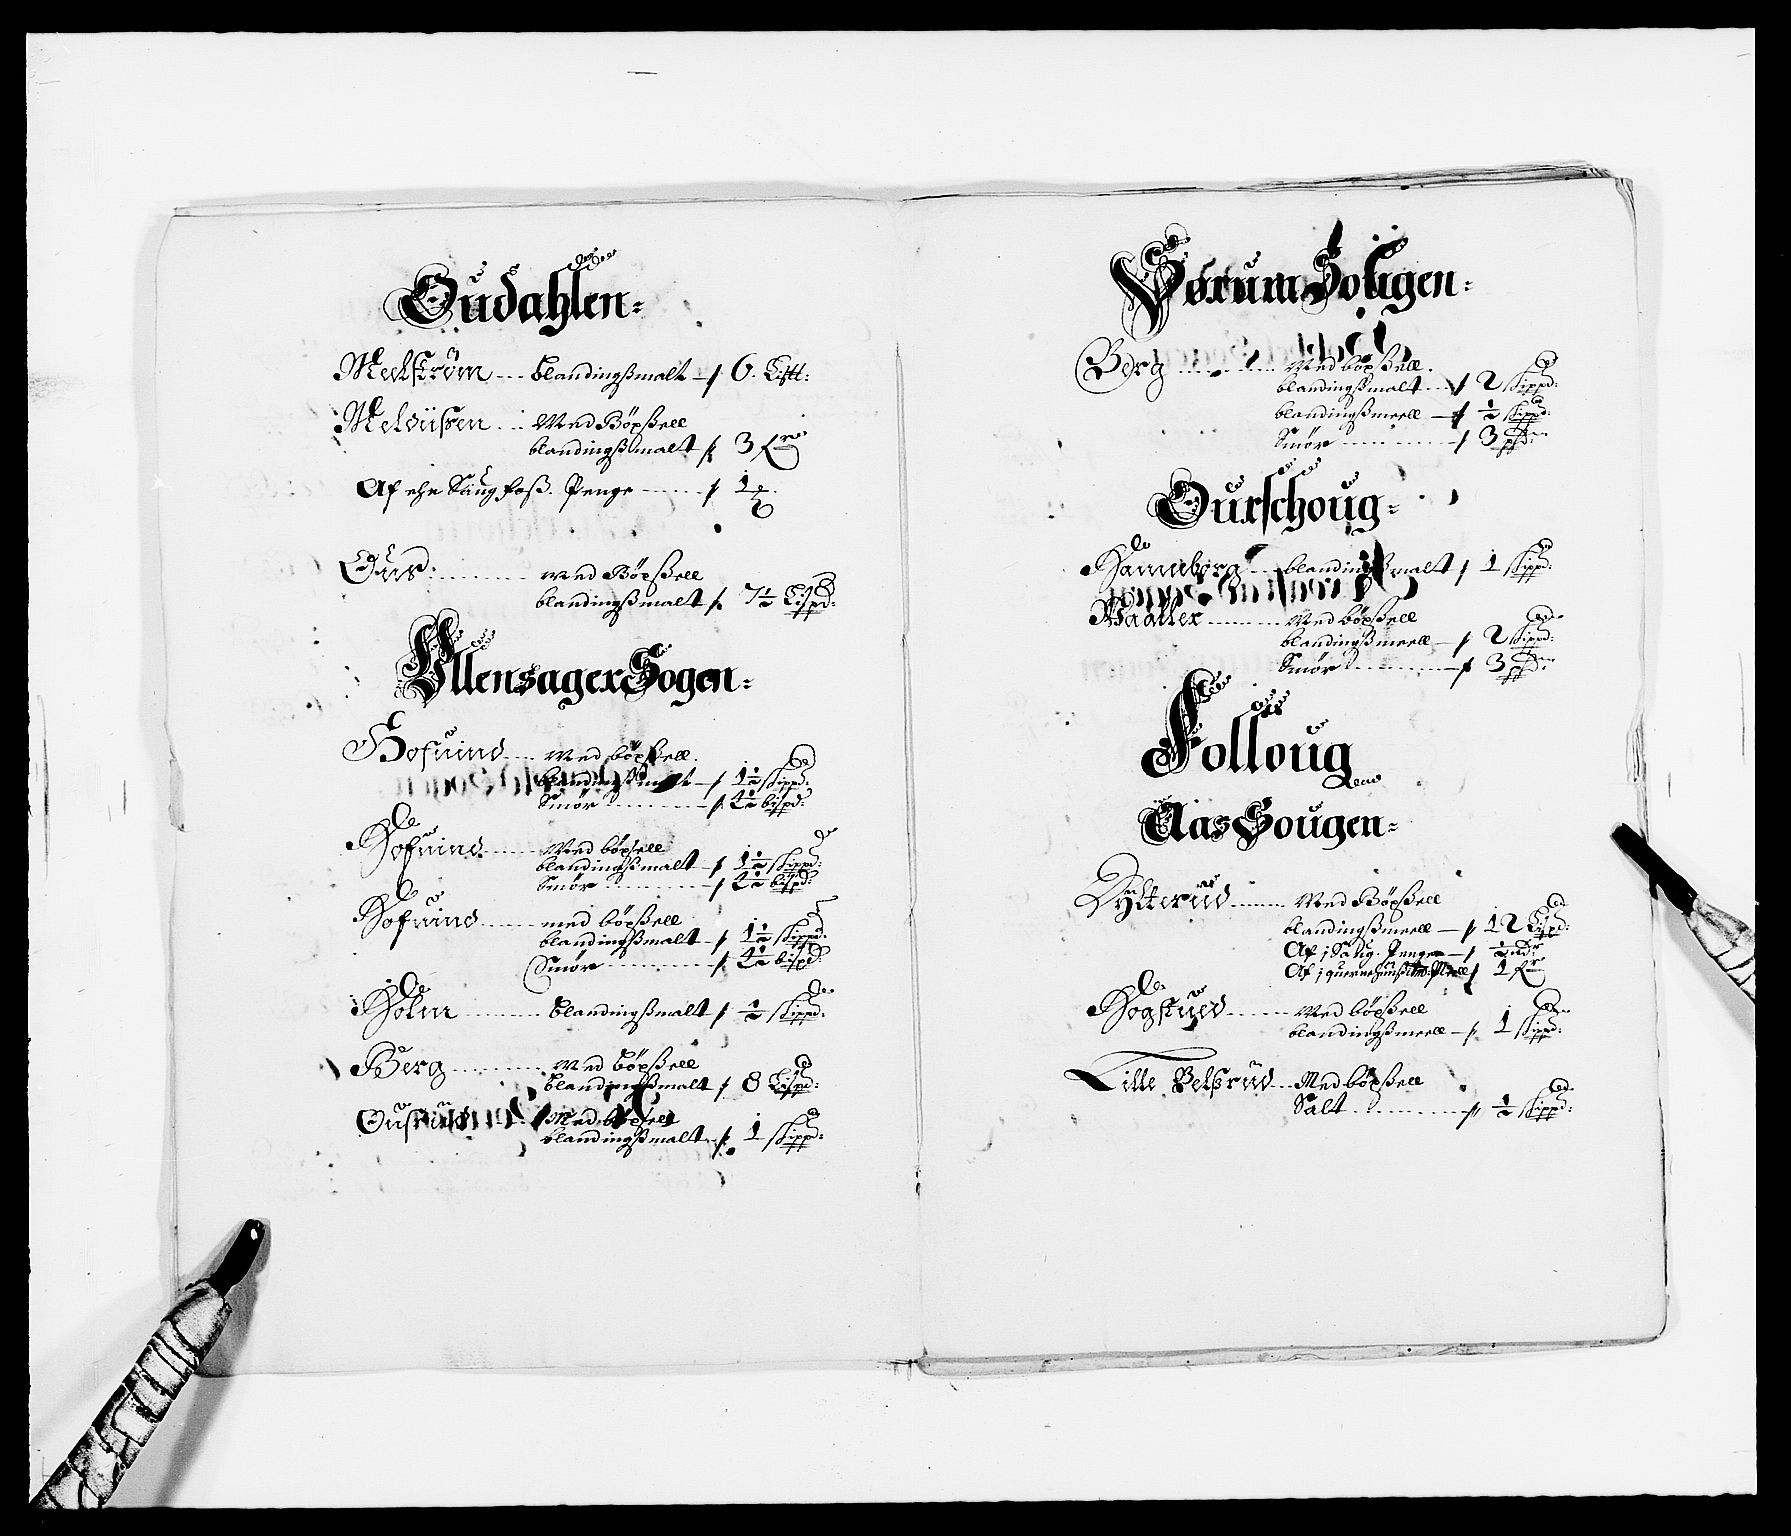 Oudahlen
Melstrøm blandingsmalt - 6 Listt:
Melduisen Med Bøxsell
blandingsmalt 3 fr
Af ehn Saug foss. Penge 1
Ous Med Bøxsell
blandingsmalt 7½ Lispd:
Ullensager Sogen
Hofuind Med bøxsell
blandingsmalt 1½ skippd:
Smør 4½ bispd:
Hofuind Med bøxsell
blandingsmalt 1½ skippd:
Smør 4½ bispd:
Hofuind med bøxsell
blandingsmalt 1½ skippd:
Smør 4½ bispd:
Holm blandingsmalt ½ skippd:
Berg Med bøxsell
blandingsmalt 8 Lispd:
Med bøxsell
blandingsmalt 1 skippd:
Sørum Sougen
Berg Med bøxsell
blandingsmalt 2 skippd:
blandingsmeell ½ skippd:
Smør 3
Ourschoug
Hammborg blandingsmalt 1 skippd:
Waaller Med bøxsell
blandingsmeell 2 skippd:
Smør 3
Folloug
Aas Sougen
Dyltterud Med Bøxsell
blandingsmeell 12 Lispd:
Af j Saug. Penge ½ dr
Af j quernehuus Meell 1 fr
Hogstued Med bøxsell
blandingsmeell 1 skippd:
Lille Belsrud Med bøxsell
Salt ½ skippd: